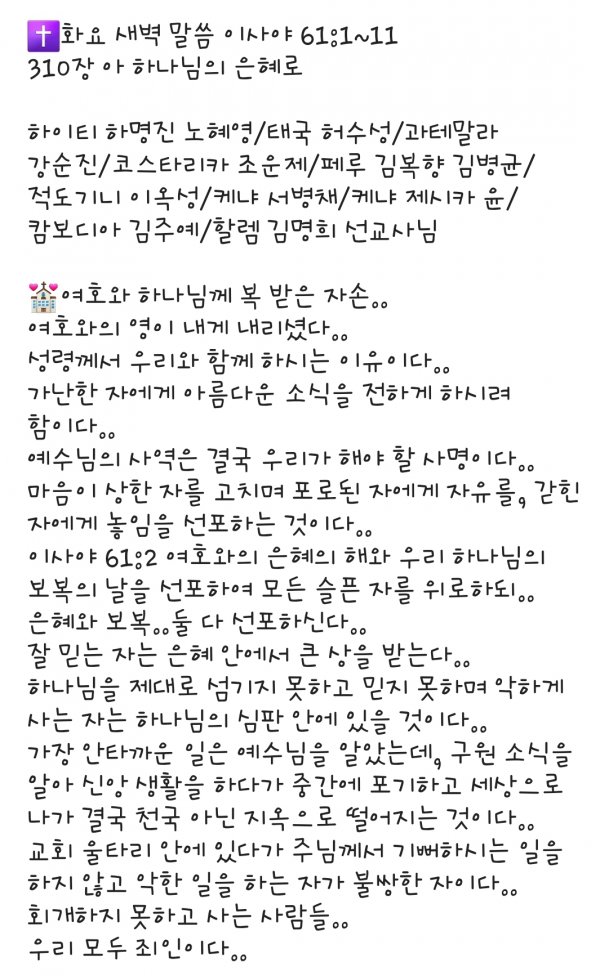 ✝️화요 새벽 말씀 이사야 61:1~11
310장 아 하나님의 은혜로
하이티 하명진 노혜영/태국 허수성/과테말라
강순진/코스타리카 조운제/페루 김복향 김병균/
적도기니 이옥성/케냐 서병채/케냐 제시카 윤/
캄보디아 김주예/할렘 김명희 선교사님
💒여호와 하나님께 복 받은 자손..
여호와의 영이 내게 내리셨다..
성령께서 우리와 함께 하시는 이유이다..
가난한 자에게 아름다운 소식을 전하게 하시려
함이다..
예수님의 사역은 결국 우리가 해야 할 사명이다..
마음이 상한 자를 고치며 포로된 자에게 자유를, 갇힌
자에게 놓임을 선포하는 것이다..
이사야 61:2 여호와의 은혜의 해와 우리 하나님의
보복의 날을 선포하여 모든 슬픈 자를 위로하되..
은혜와 보복..둘 다 선포하신다..
잘 믿는 자는 은혜 안에서 큰 상을 받는다..
하나님을 제대로 섬기지 못하고 믿지 못하며 악하게
사는 자는 하나님의 심판 안에 있을 것이다..
가장 안타까운 일은 예수님을 알았는데, 구원 소식을
알아 신앙 생활을 하다가 중간에 포기하고 세상으로
나가 결국 천국 아닌 지옥으로 떨어지는 것이다..
교회 울타리 안에 있다가 주님께서 기뻐하시는 일을
하지 않고 악한 일을 하는 자가 불쌍한 자이다..
회개하지 못하고 사는 사람들..
우리 모두 죄인이다..